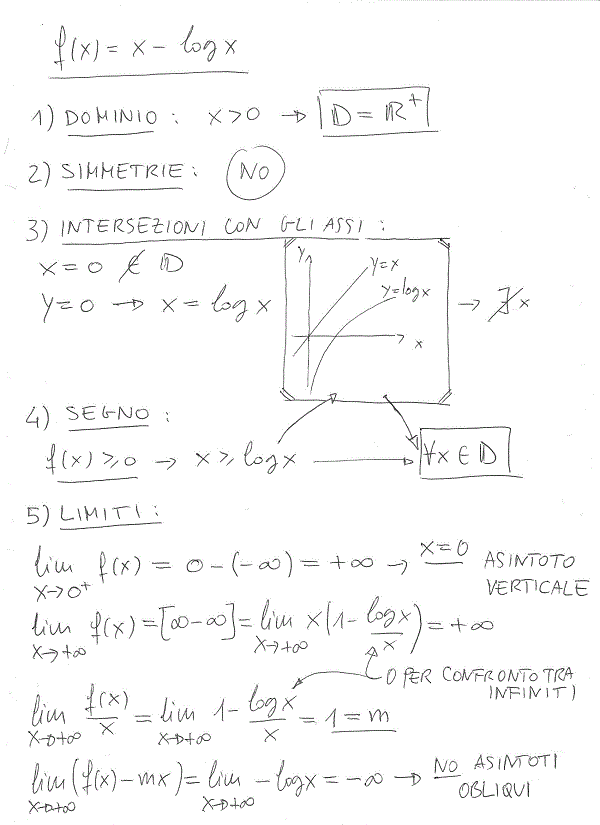 f(x) = x - log x
1) DOMINIO : x>0 → D = R⁺
2) SIMMETRIE : NO
3) INTERSEZIONI CON GLI ASSI :
x=0 ∉ D
y=0 → x = log x
y
y=x
y=log x
x
→ ∄x
4) SEGNO :
f(x) ≥ 0 → x ≥ log x → ∀x ∈ D
5) LIMITI :
lim x→0⁺ f(x) = 0-(-∞) = +∞ → x=0 ASINTOTO VERTICALE
lim x→+∞ f(x) = [∞-∞] = lim x→+∞ x(1 - log x / x) = +∞
0 PER CONFRONTO TRA INFINITI
lim x→+∞ f(x)/x = lim x→+∞ 1 - log x / x = 1 = m
lim x→+∞ (f(x)-mx) = lim x→+∞ -log x = -∞ → NO ASINTOTI OBLIQUI